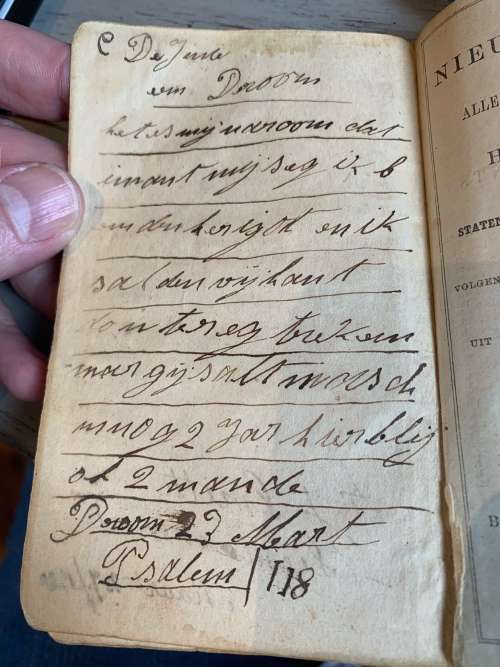 C De Jeule
een Droom
het es mij naroom dat
imant mij seg ik b
en den herigot en ik
sal den vijhant
doin tereg treken
mar gij salt
nog 2 Jar hier blij
of 2 mande
Droom 23 Mart
Psalem 118
NIEU
ALLE
H
STATEN
VOLGEN
UIT
B